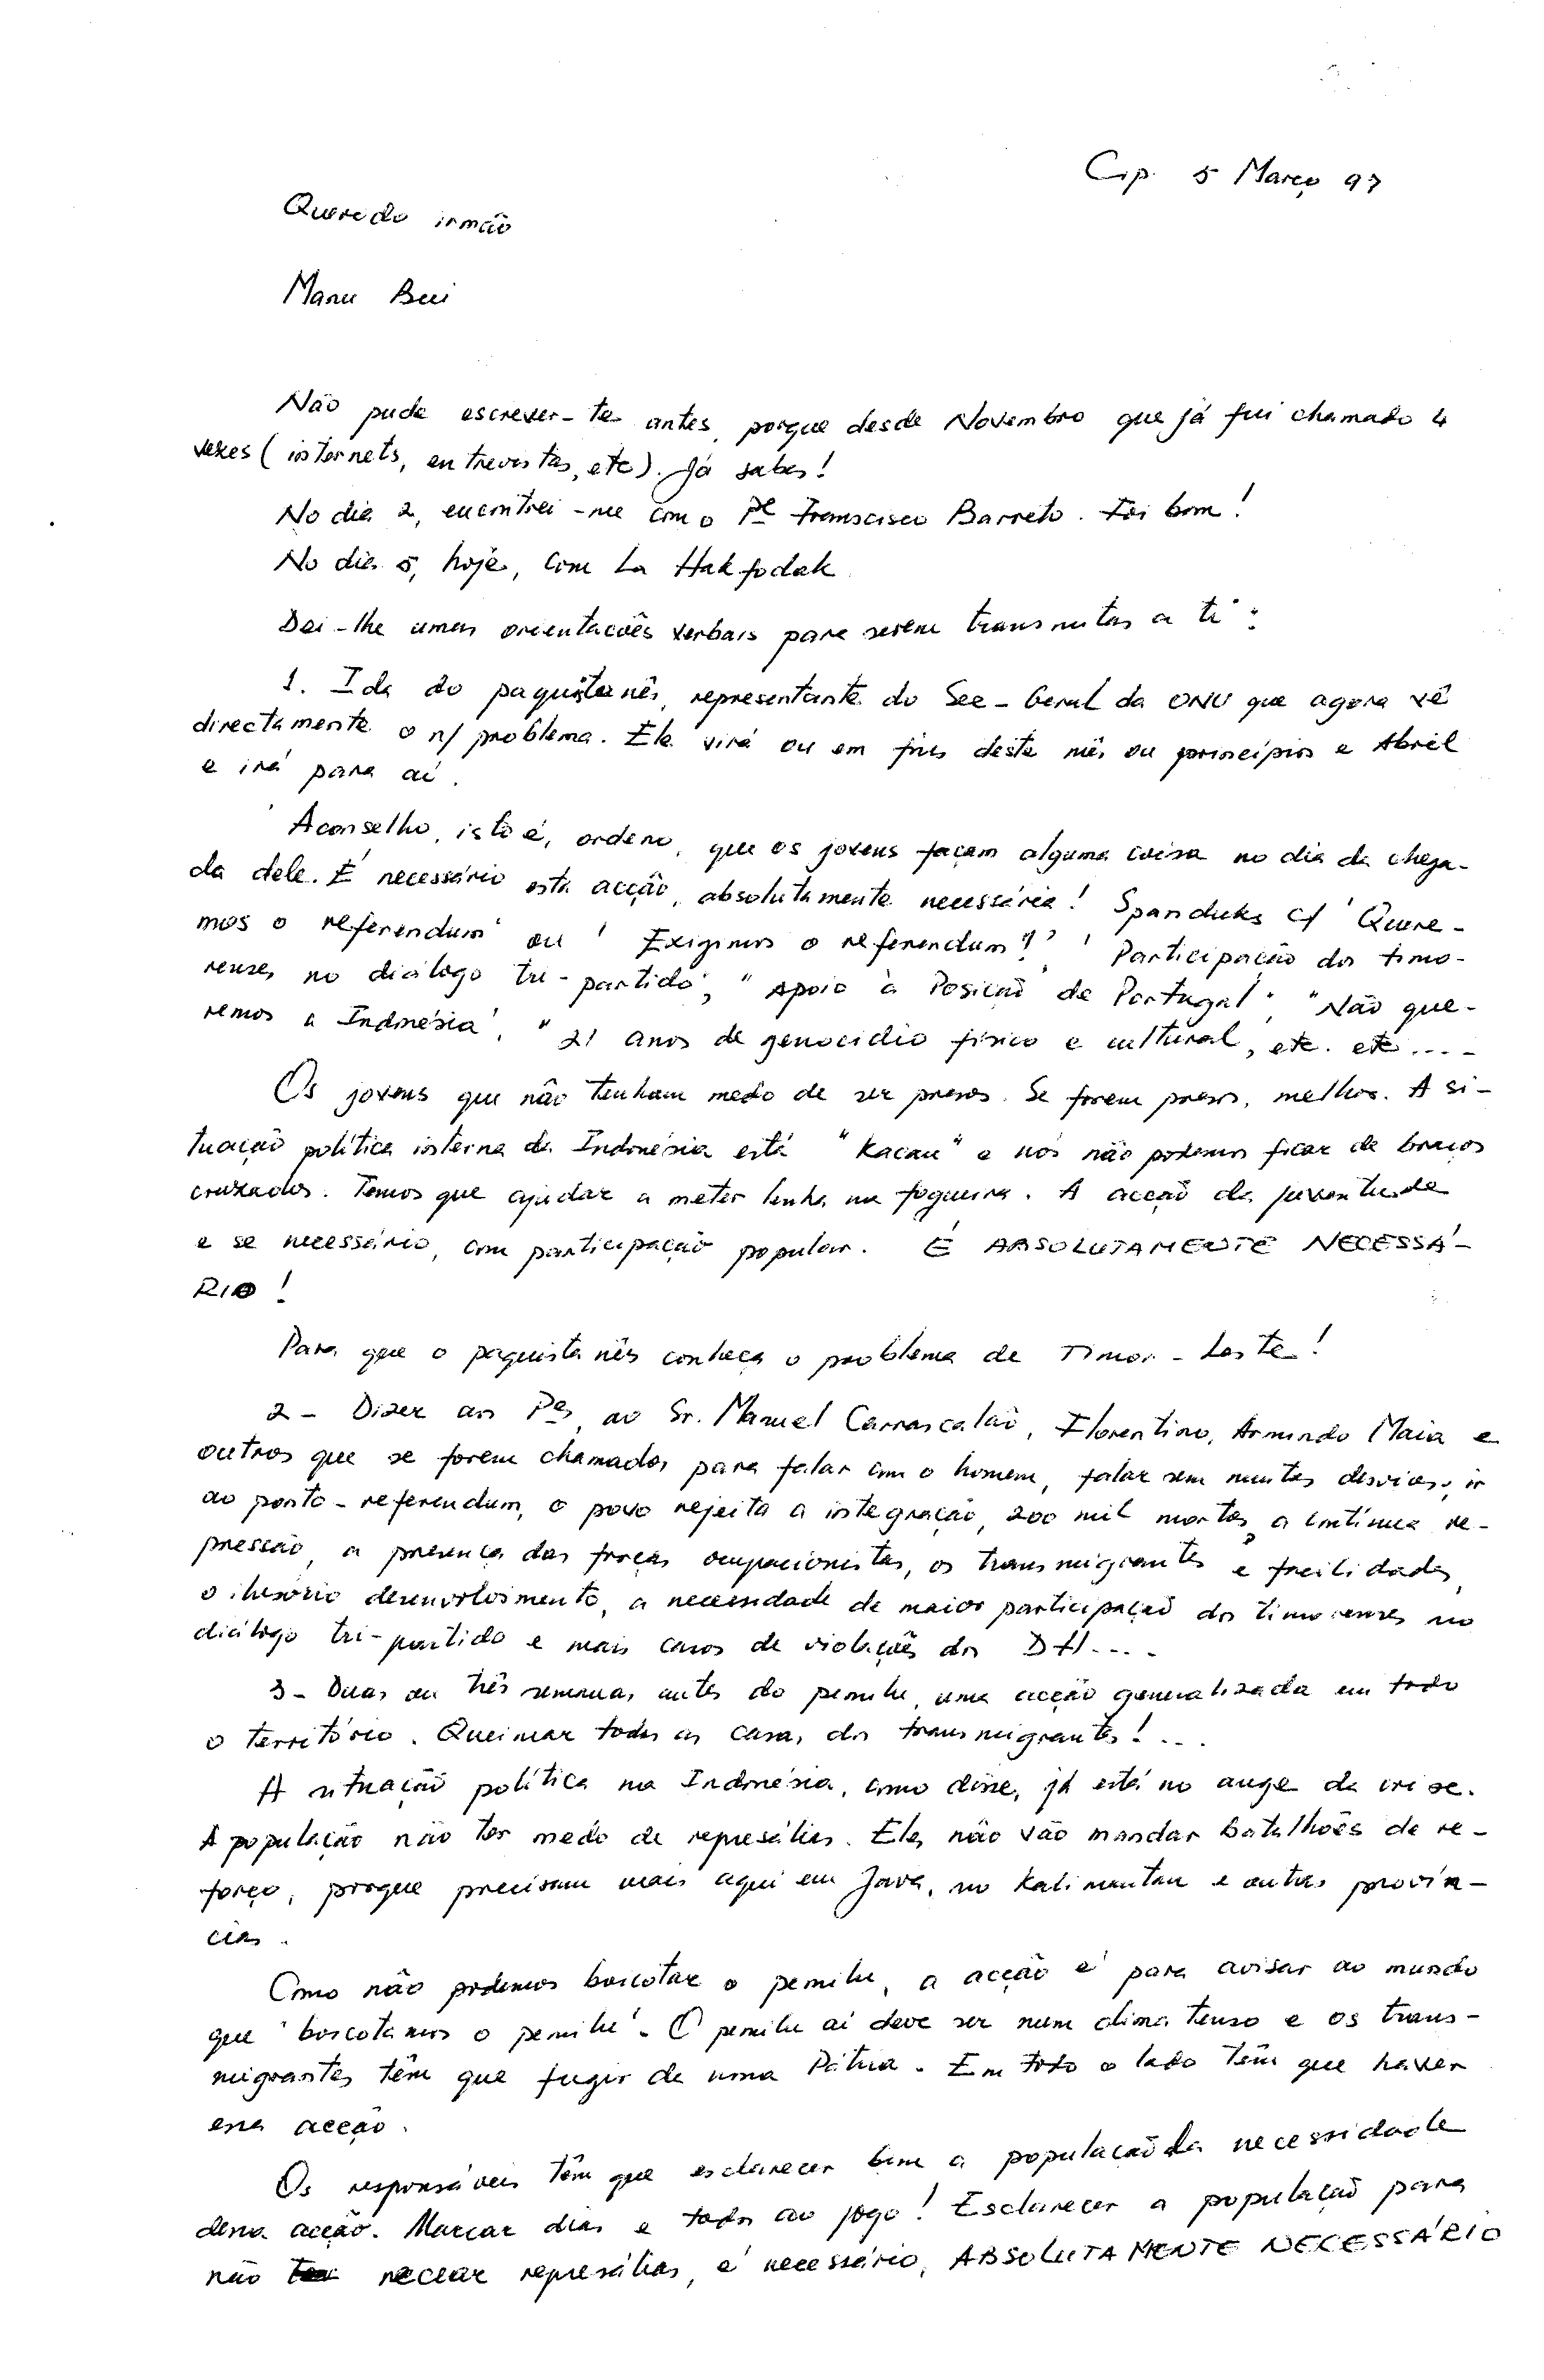 Cip. 5 Março 97
Querido irmão
Manu Bui
Não pude escrever-te antes, porque desde Novembro que já fui chamado 4
vezes (internets, entrevistas, etc). Já sabes!
No dia 2, encontrei-me com o Pe Franscisco Barreto. Foi bom!
No dia 5, hoje, com La Hakfodak.
Dei-lhe umas orientações verbais para serem transmitas a ti:
1. Ida do paquistanês, representante do Sec-Geral da ONU que agora vê
directamente o n/ problema. Ele virá ou em fins deste mês ou princípios e Abril
e irá para aí.
Aconselho, isto é, ordeno, que os jovens façam alguma coisa no dia da chega-
da dele. É necessário esta acção, absolutamente necessária! Spanduks c/ "Quere-
mos o referendum" ou "Exigimos o referendum!", "Participação dos timo-
renses no diálogo tri-partido", "Apoio à Posição de Portugal", "Não que-
remos a Indonésia", "21 anos de genocídio físico e cultural, etc. etc....
Os jovens que não tenham medo de ser presos. Se forem presos, melhor. A si-
tuação política interna da Indonésia está "kacau" e nós não podemos ficar de braços
cruzados. Temos que ajudar a meter lenha na fogueira. A acção da juventude
e se necessário, com participação popular. É ABSOLUTAMENTE NECESSÁ-
RIO!
Para que o paquistanês conheça o problema de Timor-Leste!
2- Dizer aos Pes, ao Sr. Manuel Carrascalão, Florentino, Armindo Maia e
outros que se forem chamados para falar com o homem, falar sem muitos desvios, ir
ao ponto - referendum, o povo rejeita a integração, 200 mil mortos, a contínua re-
pressão, a presença das forças ocupacionistas, os transmigrantes e facilidades,
o ilusório desenvolvimento, a necessidade de maior participação dos timorenses no
diálogo tri-partido e mais casos de violações dos DH....
3- Duas ou três semanas antes do pemilu, uma acção generalizada em todo
o território. Queimar todas as casas dos transmigrantes!...
A situação política na Indonésia, como disse, já está no auge da crise.
A população não ter medo de represálias. Eles não vão mandar batalhões de re-
forço, porque precisam mais aqui em Java, no Kalimantan e outras provín-
cias.
Como não podemos boicotar o pemilu, a acção é para avisar ao mundo
que "boicotamos o pemilu". O pemilu aí deve ser num clima tenso e os trans-
migrantes têm que fugir da nossa Pátria. Em todo o lado têm que haver
essa acção.
Os responsáveis têm que esclarecer bem a população da necessidade
dessa acção. Marcar dias e todos ao jogo! Esclarecer a população para
não recear represálias, é necessário, ABSOLUTAMENTE NECESSÁRIO